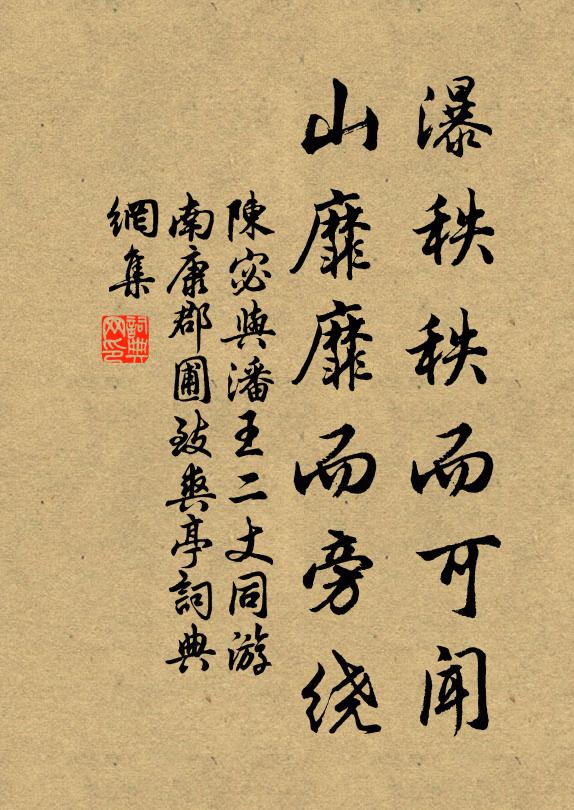 瀑秩秩而可闻
山靡靡而旁绕
陳宓與潘王二丈同游
南康郡圃致爽亭詞典
網集
詞典网印